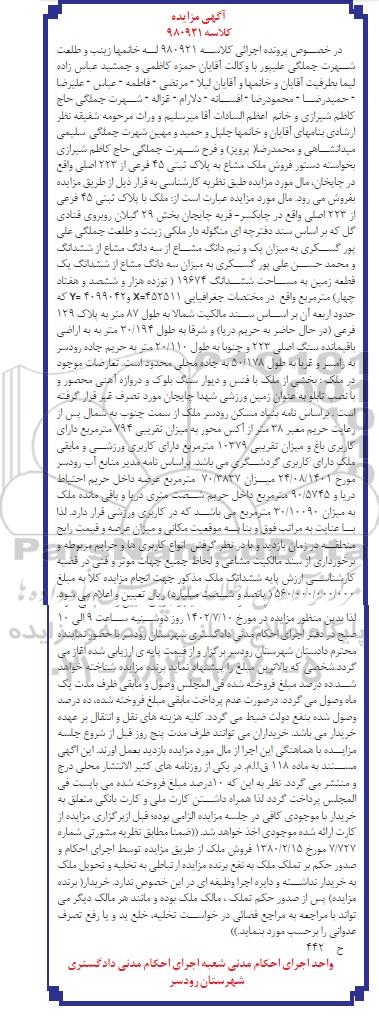 آگهی مزایده
کلاسه ۹۸۰۹۲۱
در خصوص پرونده اجرائی کلاسه ۹۸۰۹۲۱ له خانمها زینب و طلعت
شهرت جملگی علیپور با وکالت آقایان حمزه کاظمی و جمشید عباس زاده
لیما بطرفیت آقایان و خانمها و آقایان لیلا - مرتضی - فاطمه - عباس - علیرضا
- حمیدرضا - محمودرضا - افسانه - دلارام - غزاله - شهرت جملگی حاج
کاظم شیرازی و خانم اعظم السادات آقا میرسلیم و وراث مرحومه شفیقه نظر
ارشادی بنامهای آقایان و خانمها جلیل و حمید و مهین شهرت جملگی سلیمی
میدانشاهی و محمدرضا( پرویز) و فرح شهرت جملگی حاج کاظم شیرازی
بخواسته دستور فروش ملک مشاع به پلاک ثبتی ۴۵ فرعی از ۲۲۳ اصلی واقع
در چایخان، مال مورد مزایده طبق نظریه کارشناسی به قرار ذیل از طریق مزایده
بفروش می رود. مال مورد مزایده عبارت است از: ملک با پلاک ثبتی ۴۵ فرعی
از ۲۲۳ اصلی واقع در چابکسر- قریه چایجان بخش ۲۹ گیلان روبروی قنادی
گل که براساس سند دفترچه ای منگوله دار ملکی زینت و طلعت جملگی علی
پور گسکری به میزان یک و نیم دانگ مشاع از سه دانگ مشاع از ششدانگ
و محمد حسن علی پور گسکری به میزان سه دانگ مشاع از ششدانگ یک
قطعه زمین به مساحت ششدانگ ۱۹۶۷۴ ( نوزده هزار و ششصد و هفتاد
چهار) مترمربع واقع در مختصات جغرافیایی X=۴۵۲۵۱۱ و Y= ۴۰۹۹۰۴۲ که
حدود اربعه آن بر اساس سند مالکیت شمالا به طول ۸۷ متر به پلاک ۱۲۹
فرعی (در حال حاضر به حریم دریا) و شرقا به طول ۳۰/۱۹۴ متر به به اراضی
باقیمانده سنگ اصلی ۲۲۳ و جنوبا به طول ۲۰/۱۱۰ متر به حریم جاده رودسر
به رامسر و غربا به طول ۵۰/۱۷۸ به جاده محلی محدود است. تعارضات موجود
در ملک : بخشی از ملک با فنس و دیوار سنگ بلوک و دروازه آهنی محصور و
با نصب تابلو به عنوان زمین ورزشی شهدا چایجان مورد تصرف غیر قرار گرفته
است . براساس نامه بنیاد مسکن رودسر ملک از سمت جنوب به شمال پس از
رعایت حریم معبر ۳۸ متر از آکس محور به میزان تقریبی ۷۹۴ مترمربع دارای
کاربری باغ و میزان تقریبی ۱۰۳۷۹ مترمربع دارای کاربری ورزشی و مابقی
ملک دارای کاربری گردشگری می باشد. براساس نامه مدیر منابع آب رودسر
مورخ ۲۴/۰۸/۱۴۰۱ میزان ۷۰/۳۸۳۷ مترمربع عرصه داخل حریم احتیاط
دریا و ۹۰/۵۷۴۵ مترمربع داخل حریم شصت متری دریا و باقی مانده ملک
به میزان ۳۰/۱۰۰۹۰ مترمربع می باشد که در کاربری ورزشی قرار دارد. لذا
با عنایت به مراتب فوق و بنا به موقعیت مکانی و میزان عرصه و قیمت رایج
منطقه در زمان بازدید و با در نظر گرفتن انواع کاربری ها و حرایم مربوطه و
برخورداری از سند مالکیت مشاعی و لحاظ جمیع جهات موثر و فنی در قضیه
کارشناسی ارزش پایه ششدانگ ملک مذکور جهت انجام مزایده کلا به مبلغ
۵۶۰/۰۰۰/۰۰۰/۰۰۰( پانصد و شصت میلیارد) ریال تعیین و اعلام می شود.
لذا بدین منظور مزایده در مورخ ۱۴۰۲/۷/۱۰ روز دوشنبه ساعت ۹ الی ۱۰
صبح در دفتر اجرای احکام مدنی دادگستری شهرستان رودسر با حضور نماینده
محترم دادستان شهرستان رودسر برگزار و از قیمت پایه ی ارزیابی شده آغاز می
گردد.شخصی که بالاترین مبلغ را پیشنهاد نماید برنده مزایده شناخته خواهد
شد.ده درصد مبلغ فروخته شده فی المجلس وصول و مابقی ظرف مدت یک
ماه وصول می گردد. درصورت عدم پرداخت مابقی مبلغ فروخته شده، ده درصد
وصول شده بنفع دولت ضبط می گردد. کلیه هزینه های نقل و انتقال بر عهده
خریدار می باشد. خریداران می توانند ظرف مدت پنج روز قبل از شروع جلسه
مزایده با هماهنگی این اجرا از مال مورد مزایده بازدید بعمل اورند. این اگهی
مستند به ماده ۱۱۸ ق.ا.ا.م. در یکی از روزنامه های کثیر الانتشار محلی درج
و منتشر می گردد. نظر به این که ۱۰درصد مبلغ فروخته شده می بایست فی
المجلس پرداخت گردد لذا همراه داشتن کارت ملی و کارت بانکی متعلق به
خریدار با موجودی کافی در جلسه مزایده الزامی بوده؛ قبل ازبرگزاری مزایده از
کارت ارائه شده موجودی اخذ خواهد شد. ((ضمنا مطابق نظریه مشورتی شماره
۷/۷۲۷ مورخ ۱۳۸۰/۲/۱۵ فروش ملک از طریق مزایده توسط اجرای احکام و
صدور حکم بر تملک ملک به نفع برنده مزایده ارتباطی به تخلیه و تحویل ملک
به خریدار نداشته و دایره اجرا وظیفه ای در این خصوص ندارد. خریدار( برنده
مزایده) پس از صدور حکم تملک ، مالک ملک بوده و مانند هر مالک دیگر می
تواند با مراجعه به مراجع قضائی در خواست تخلیه، خلع ید و یا رفع تصرف
عدوانی را برحسب مورد بنماید.))
ح ۴۴۲
واحد اجرای احکام مدنی شعبه اجرای احکام مدنی دادگستری
شهرستان رودسر